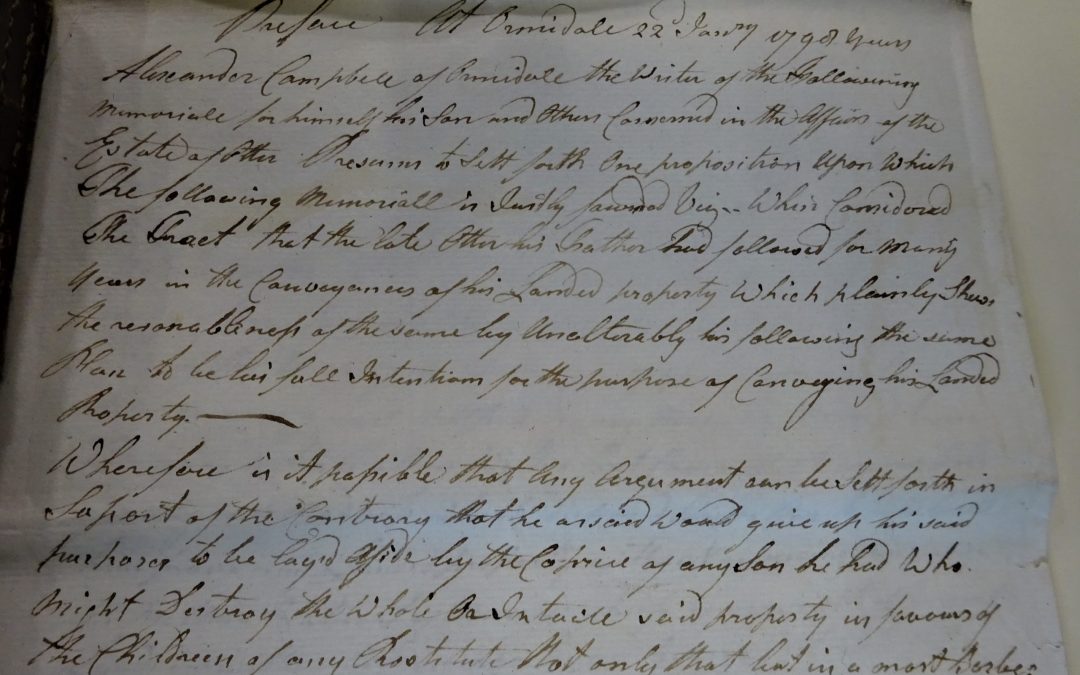 Preface At Ormidale 22d Janry 1798 Years
Alexander Campbell of Ormidale the Writer of the Following
Memoriale for himself his Son and Others Concerned in the Affairs of the
Estate of Otter Presums to Sett forth One proposition Upon Which
The following Memoriall is Justly fowned Viz-- When Considered
The Tract that the late Otter his Father had followed for many
Years in the Conveyances of his Landed property Which plainly Shews
the resonableness of the same by Unalterably his following the same
Plan to be his full Intentions for the purpose of Conveying his Landed
Property.
Wherefore is it possible that Any Argument can be Sett forth in
Suport of the Contrary that he as said Would give up his said
purposes to be layd Aside by the Caprice of any Son he had Who
Might Destroy the Whole Or Intaile said property in favours of
the Children of any Prostitute Not only that but in a most